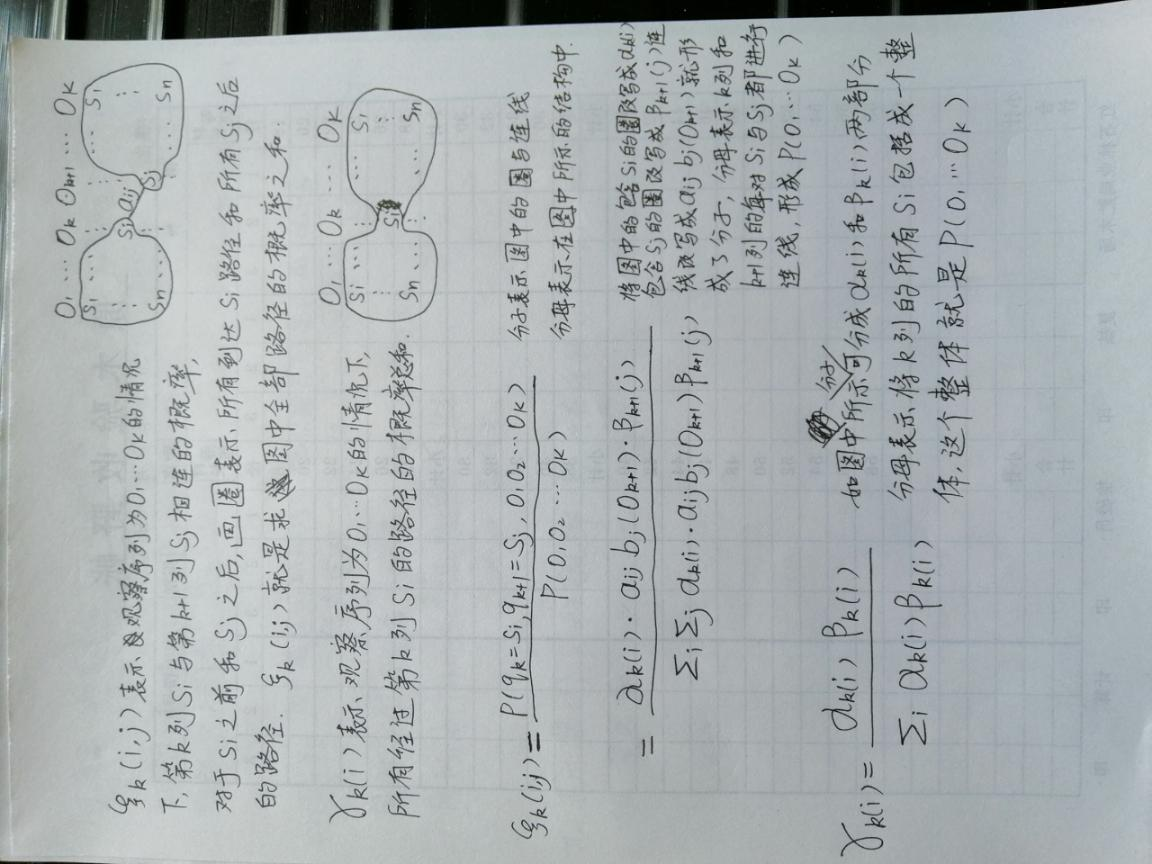 ξk(i,j)表示观察序列为O1…Ok的情况
下,第k列Si与第k+1列Sj相连的概率,
对于Si之前和Sj之后,画圈表示所有到达Si路径和所有Sj之后
的路径. ξk(i,j)就是求图中全部路径的概率之和.
O1 … Ok Ok+1 … Ok
Si … Si aij Sj … Si
Sn … Sn
γk(i)表示观察序列为O1…Ok的情况下,
所有经过第k列Si的路径的概率总和.
O1 … Ok … Ok
Si … Si … Si
Sn … Sn
ξk(i,j) = P(qk=Si,qk+1=Sj, O1O2…Ok) / P(O1O2 … Ok)
分子表示图中的圈与连线
分母表示在图中所示的结构中.
= αk(i)·aij bj(Ok+1)·βk+1(j) / ΣiΣj αk(i)·aij bj(Ok+1) βk+1(j)
将图中的包含Si的圈改写成αk(i)
包含Sj的圈改写成βk+1(j)连
线改写成aij bj(Ok+1)就形
成了分子,分母表示k列和
k+1列的每对Si与Sj都进行
连线,形成P(O1…Ok)
γk(i) = αk(i) βk(i) / Σi αk(i) βk(i)
如图中所示分子可分成αk(i)和βk(i)两部分
分母表示将k列的所有Si包括成一个整
体,这个整体就是P(O1…Ok)